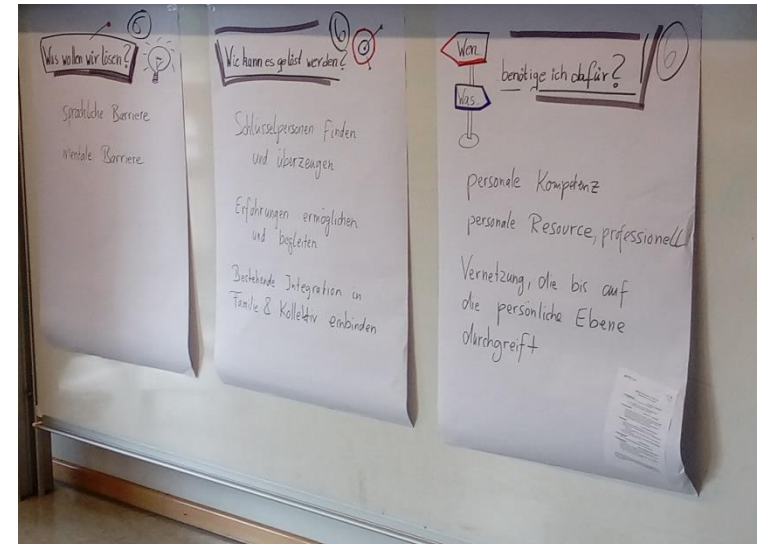 6
Was wollen wir lösen?
Sprachliche Barriere
Mentale Barriere
6
Wie kann es gelöst werden?
Schlüsselpersonen finden
und überzeugen
Erfahrungen ermöglichen
und begleiten
Bestehende Integration in
Familie & Kollektiv einbinden
6
Wen
Was
benötige ich dafür?
personale Kompetenz
personale Resource, professionell
Vernetzung, die bis auf
die persönliche Ebene
durchgreift